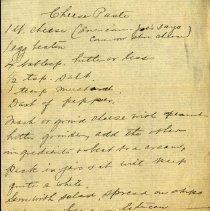 Cheese Paste
1 lb. cheese (American
Common store cheese)
1 egg beaten
4 tablesp. butter or less
1/2 tsp. Salt.
1 teasp mustard
Dash of pepper.
Mash or grind cheese with peanut
butter grinder, add the other
ingredients & beat to a cream,
Pack in jars & it will keep
quite a while
Serve with salad spread on chips